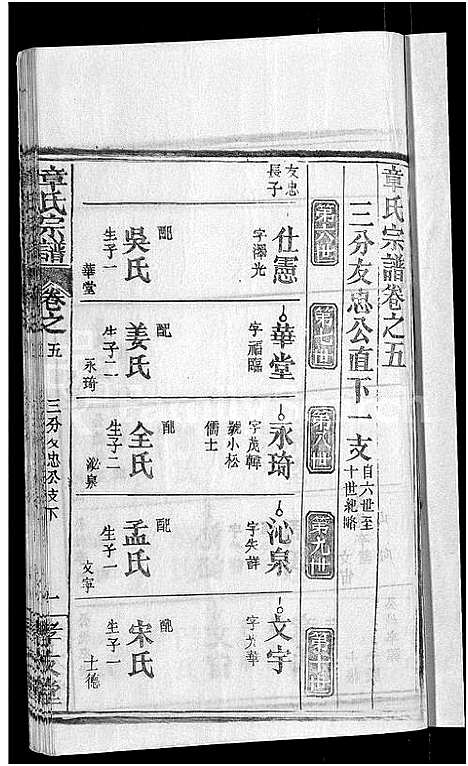 章氏宗譜卷之五
三分友忠公直下一支
自六世至
十世紀略
第六世
第七世
第八世
第九世
第十世
友忠
長子
仕憲
字澤光
配
吳氏
生子一
華堂
華堂
字福臨
配
姜氏
生子二
永琦
永琦
字茂韓
號小松
儒士
配
全氏
生子二
沁泉
沁泉
字失詳
配
孟氏
生子一
文宇
文宇
配
宋氏
生子一
士德
章氏宗譜
卷之五
三分友忠公支下
一
孝友堂